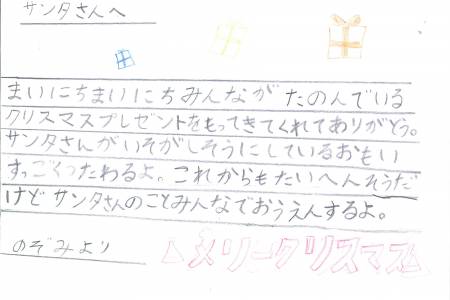 サンタさんへ
まいにちまいにちみんなが たのんでいる
クリスマスプレゼントをもってきてくれてありがとう。
サンタさんがいそがしそうにしているおもい
すっごくつたわるよ。これからもたいへんそうだ
けど サンタさんのことみんなでおうえんするよ。
のぞみより
メリークリスマス